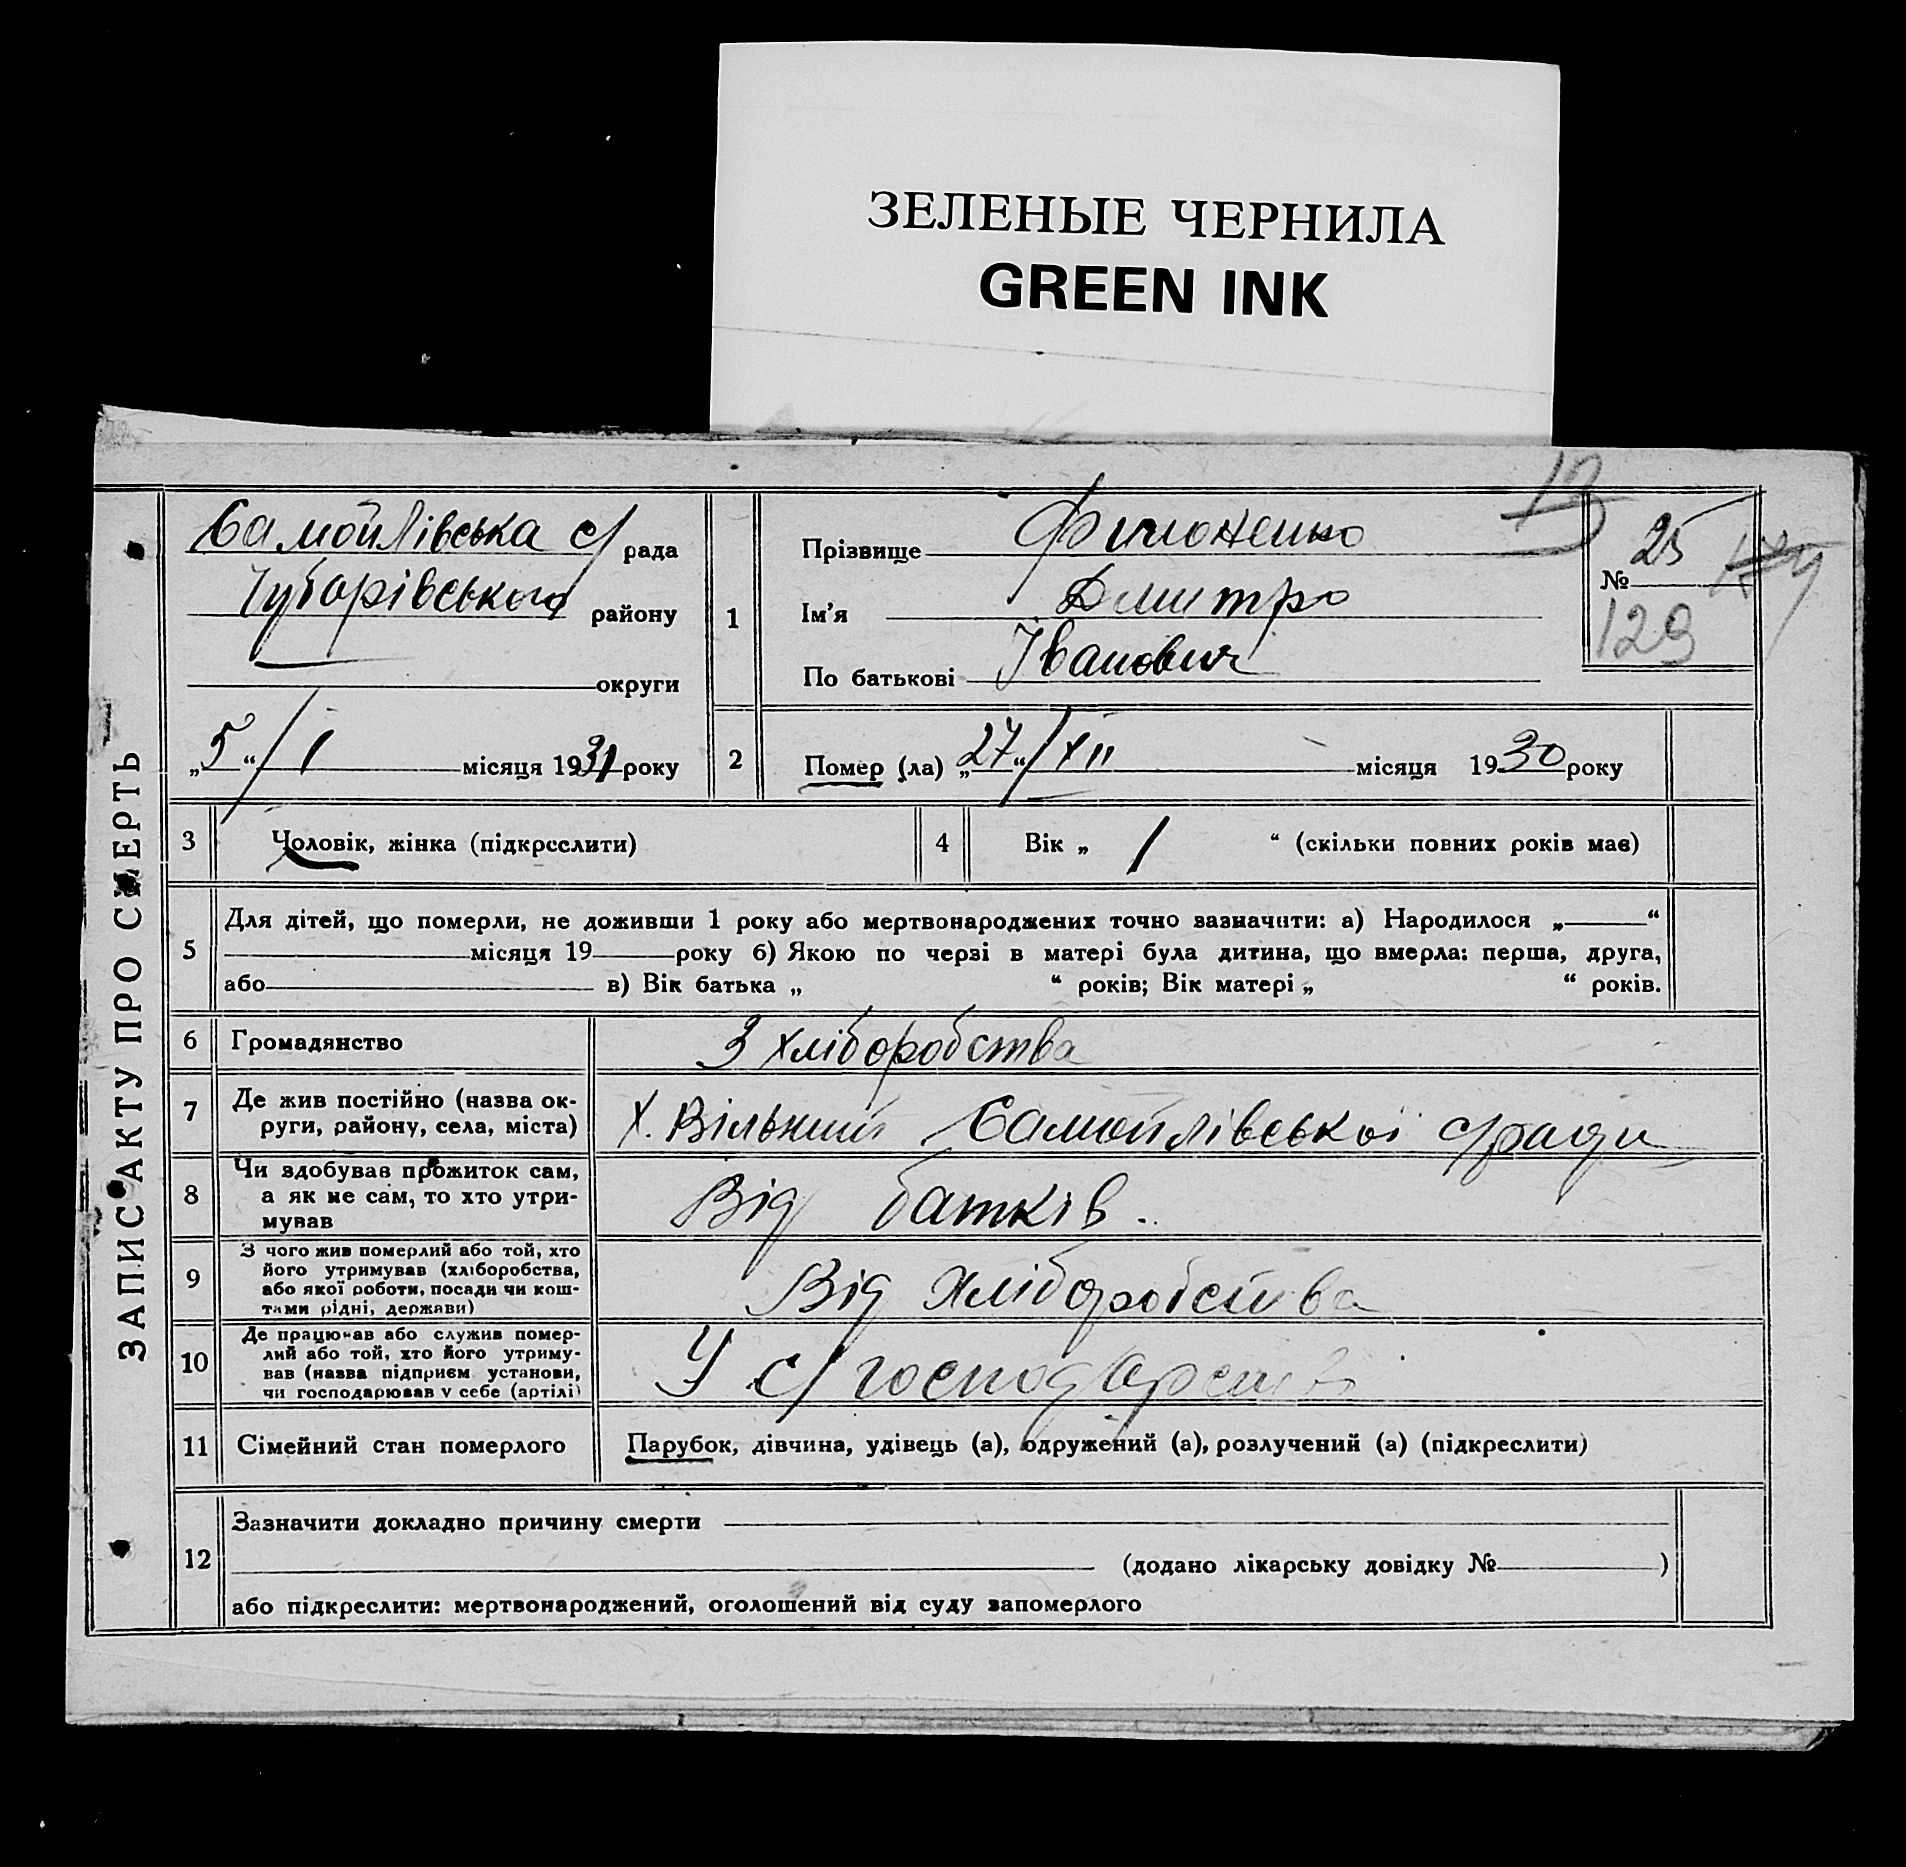 ЗЕЛЕНЫЕ ЧЕРНИЛА
GREEN INK
ЗАПИС АКТУ ПРО СМЕРТЬ
Самойлівська с/рада
Чубарівського району
округи
„5“ I місяця 1931 року
1
Прізвище Филоненко
Ім'я Дмитро
По батькові Іванович
13
№ 25
129
2
Помер (ла) „27“ XII місяця 1930 року
3
Чоловік, жінка (підкреслити)
4
Вік „ 1 “ (скільки повних років має)
5
Для дітей, що померли, не доживши 1 року або мертвонароджених точно зазначити: а) Народилося „ “
місяця 19 року б) Якою по черзі в матері була дитина, що вмерла: перша, друга,
або в) Вік батька „ “ років; Вік матері „ “ років.
6
Громадянство
З хліборобства
7
Де жив постійно (назва ок-
руги, району, села, міста)
Х. Вільний Самойлівської с/ради
8
Чи здобував прожиток сам,
а як не сам, то хто утри-
мував
Від батків.
9
З чого жив померлий або той, хто
його утримував (хліборобства,
або якої роботи, посади чи кош-
тами рідні, держави)
Від хліборобства
10
Де працював або служив помер-
лий або той, хто його утриму-
вав (назва підприєм. установи,
чи господарював у себе (артілі)
У с/господарстві
11
Сімейний стан померлого
Парубок, дівчина, удівець (а), одружений (а), розлучений (а) (підкреслити)
12
Зазначити докладно причину смерти
(додано лікарську довідку № )
або підкреслити: мертвонароджений, оголошений від суду запомерлого